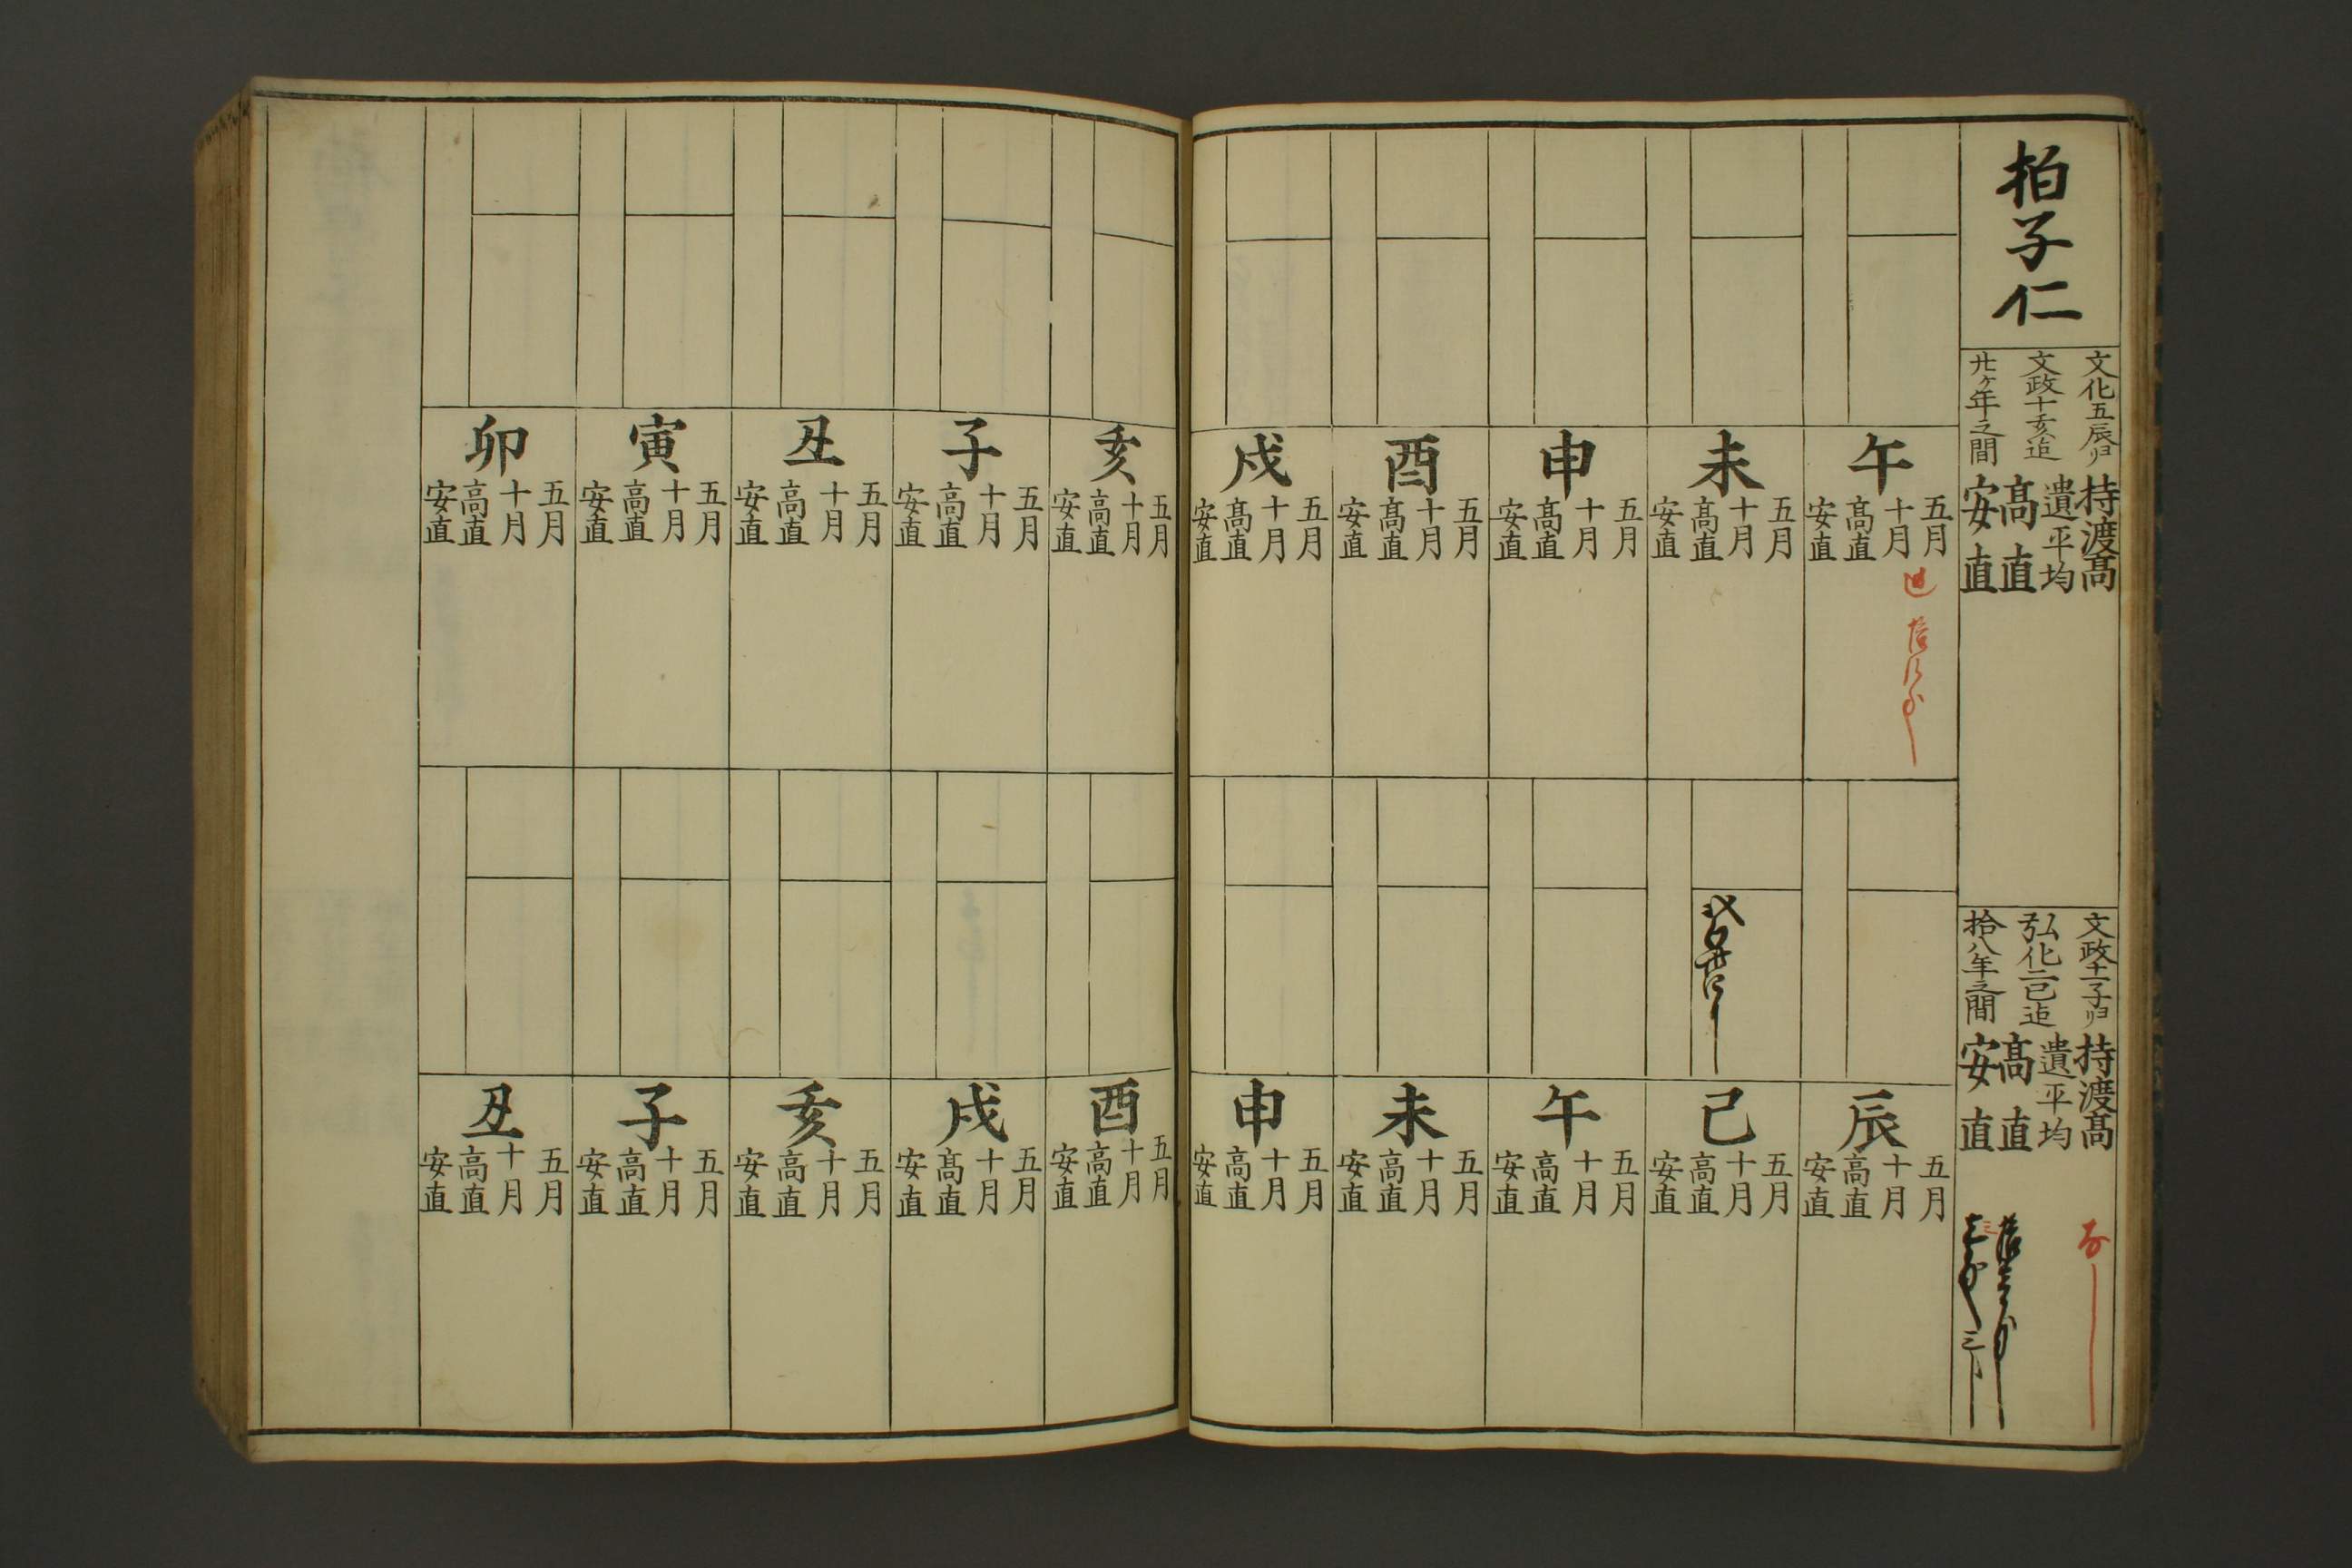 柏子仁
文化五辰ゟ
文政十亥迠
廿ヶ年之間
持渡髙
遺平均
髙直
安直
文政十一子ゟ
弘化二巳迠
拾八ヶ年之間
持渡髙
遺平均
髙直
安直
午
五月
十月
髙直
安直
未
五月
十月
髙直
安直
申
五月
十月
髙直
安直
酉
五月
十月
髙直
安直
戌
五月
十月
髙直
安直
亥
五月
十月
髙直
安直
子
五月
十月
髙直
安直
丑
五月
十月
髙直
安直
寅
五月
十月
髙直
安直
卯
五月
十月
髙直
安直
辰
五月
十月
髙直
安直
巳
五月
十月
髙直
安直
午
五月
十月
髙直
安直
未
五月
十月
髙直
安直
申
五月
十月
髙直
安直
酉
五月
十月
髙直
安直
戌
五月
十月
髙直
安直
亥
五月
十月
髙直
安直
子
五月
十月
髙直
安直
丑
五月
十月
髙直
安直